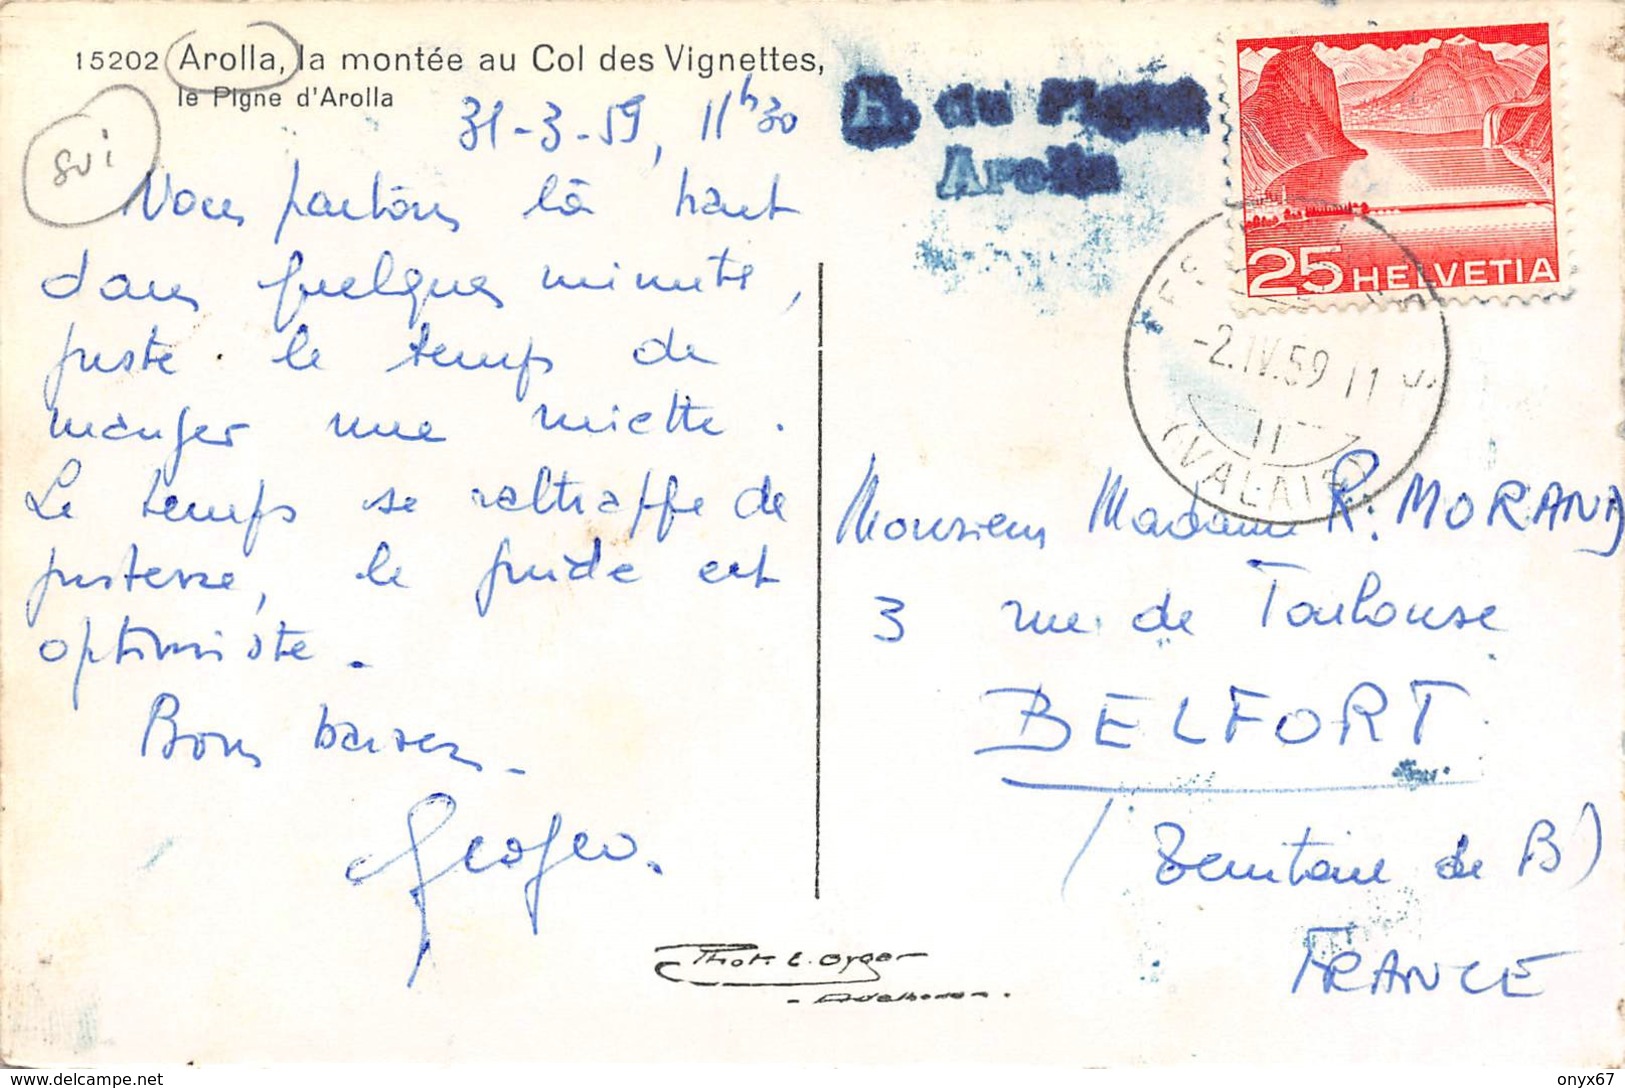 15202 Arolla, la montée au Col des Vignettes,
le Pigne d'Arolla
sui
31-3-59, 11h30
Nous partons là haut
dans quelques minutes,
juste le temps de
manger une miette.
Le temps se rattrappe de
justesse, le guide est
optimiste.
Bons baisers.
H. du Pigne
Arolla
25 HELVETIA
-2.IV.59 11
11
(VALAIS)
Monsieur Madame R. MORAND
3 rue de Toulouse
BELFORT
(Territoire de B)
FRANCE
Phot. E. Gyger
- Adelboden -.
www.delcampe.net
onyx67